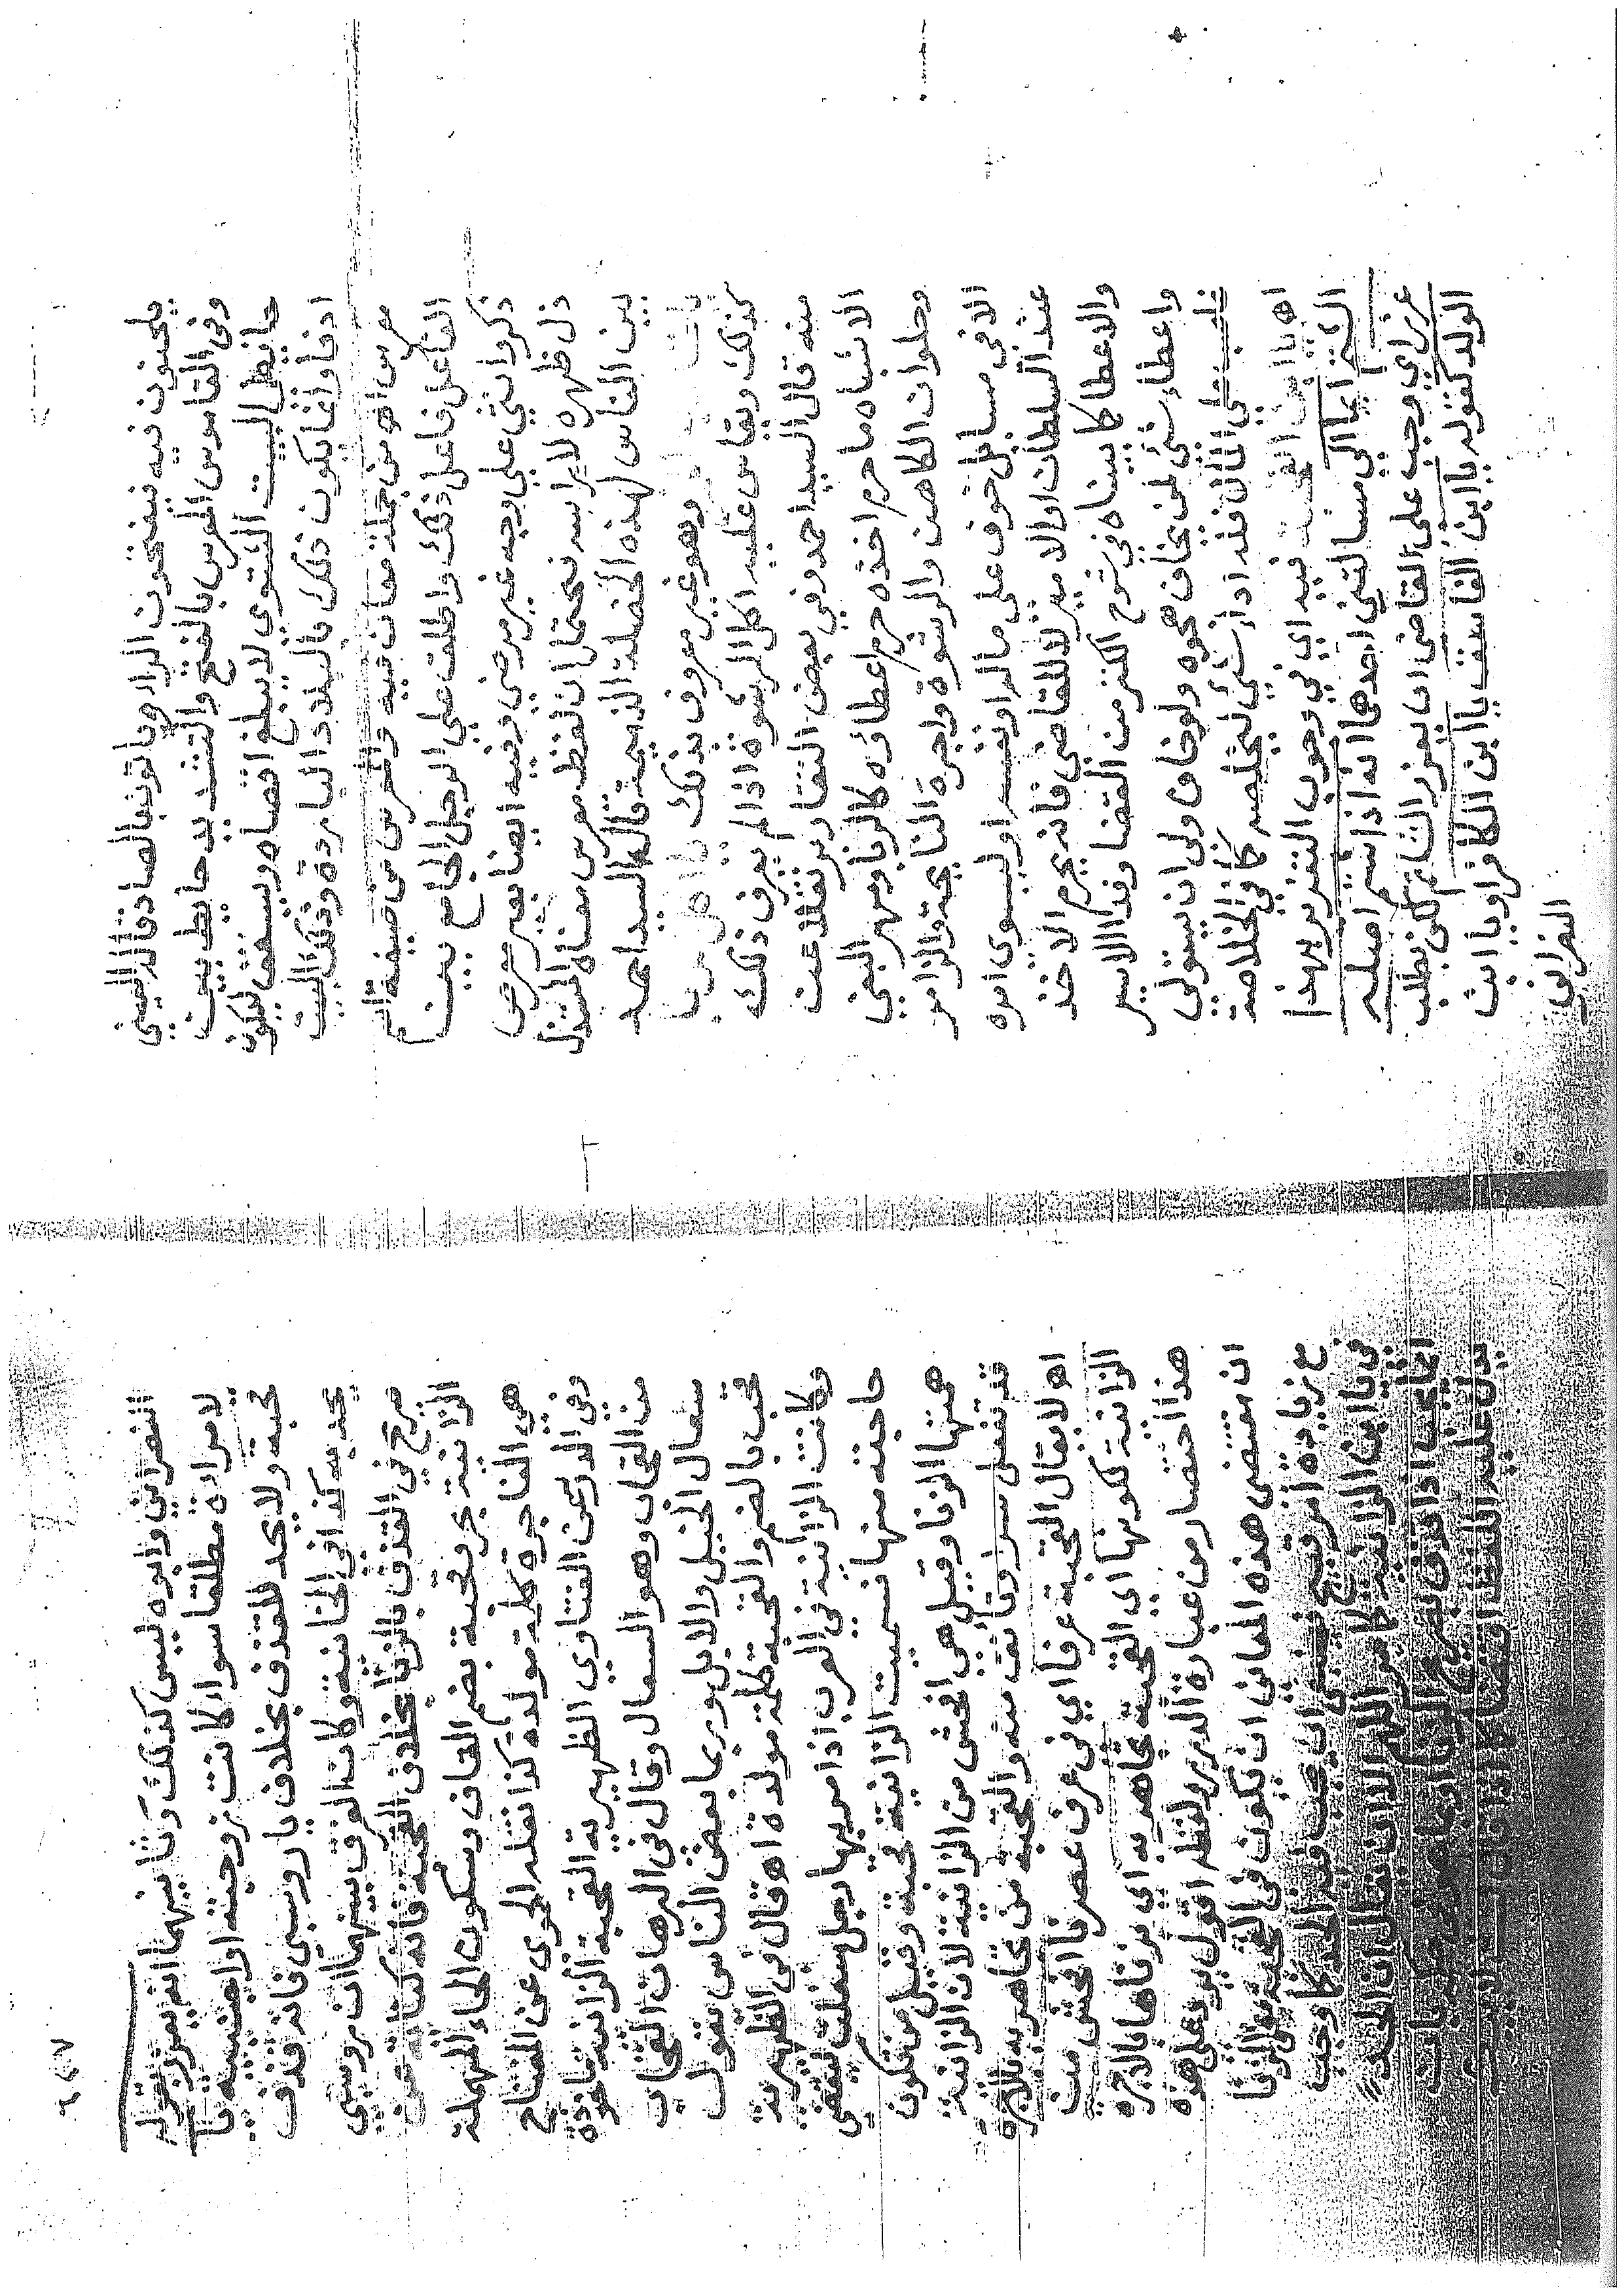 يلحنون فيه فيفتحون الراء وياتون بالصاد قال العيني
وفى القاموس المعرس بالفتح والتشديد حايط بين
حايطى البيت الشتوى لا يبلغ اقصاه ويسقف ليكون
ادفا وانما يكون ذلك بالبلاد الباردة وذلك البيت
معرس اه من جملة معان فيه والمعرس من صيغة اسم
الفاعل فاعل ذلك واطلق علي الرجل الجامع بين
ذكر وانثي علي وجه غير مرضي وفيه ايضا بعير معرص
ذل ظهره لا يراسه فيحتمل ان لفظ معرس معناه المتذلل
بين الناس لهذه الخصلة الذميمة قاله السيد احمد
وهو غير معروف بذلك
كذلك ويقاس عليه اكل الرشوة اذا لم يعرف ذلك
منه قال السيد احمد وفي بعض التقارير نقلا عن
الاشباه ما حرم اخذه حرم اعطاؤه كالربا ومهر البغي
وحلوان الكاهن والرشوة واجرة النايحة والزامر
الا في مسايل خوف على ماله او نفسه او ليسوى امره
عند السلطان او الامير لا للقاضى فانه يحرم الاخذ
والاعطا كما بيناه في شرح الكنز من القضا وفدا الاسير
واعطاء شئ لمن يخاف هجوه ولو خاف ولى ان يستولي
على المال فله اداء شئ لتخليصه كما في الخلاصة
اه يا ابن القحبة فيه اي في وجوب التعزير بهذا
الشتم ايما الي مسالتين احدهما انه اذا شتم اصله
عزراي وجب على القاضى ان يعزر الشاتم لكن بطلب
الولد كقوله يا ابن الفاسق يا ابن الكافر او يا ابن
النصراني
٦٤٧
النصراني وابوه ليس كذلك وثانيهما انه يعزر بقوله
لامراته مطلقا سواء كانت زوجته او اجنبية يا
قحبة ولا يحد للقذف بخلاف يا روسبي فانه قذف
يحد به كذا في الخانية وكان الفرق بينهما ان روسبي
صرح في القذف بالزنا بخلاف القحبة فانه كناية عن
الزانية بحر وقحبة بضم القاف وسكون الحاء المهملة
هى الفاجرة كلمة مولدة كذا نقله الحموى عن المفتاح
وفى الدر عن الفتاوى الظهيرية القحبة الزانية ماخوذة
من القحاب وهو السعال وقال في البرهان القحاب
سعال الخيل والابل وربما بعض الناس يقول
قحب بالضم والقحبة كلمة مولدة اه قال في الظهيرية
وكانت الزانية في العرب اذا مر بها رجل سعلت ليقضى
حاجته منها فسميت الزانية قحبة وقيل من تكون
همتها الزنا وقيل هي افحش من الزانية لان الزانية
قد تفعل سرا وتانف منه والقحبة من تجاهر به بالاجرة
اه لا يقال القحبة عرفا اي في عرف عصرنا افحش من
الزانية لكونها اي القحبة تجاهر به اي بزناها بالاجرة
هذا اختصار من عبارة الدرر ولفظه اقول يرد على هذه
ان مقتضى هذه المعانى ان يكون في القحبة معنى الزنا
مع زيادة امر قبيح فينبغى ان يجب فيه الحد كما وجب
في يا ابن الزانية كما مر اللهم الا ان يقال ان الحد
انما يجب اذا قذف بصريح الزنا
يدل عليه اللفظ اقتضاء